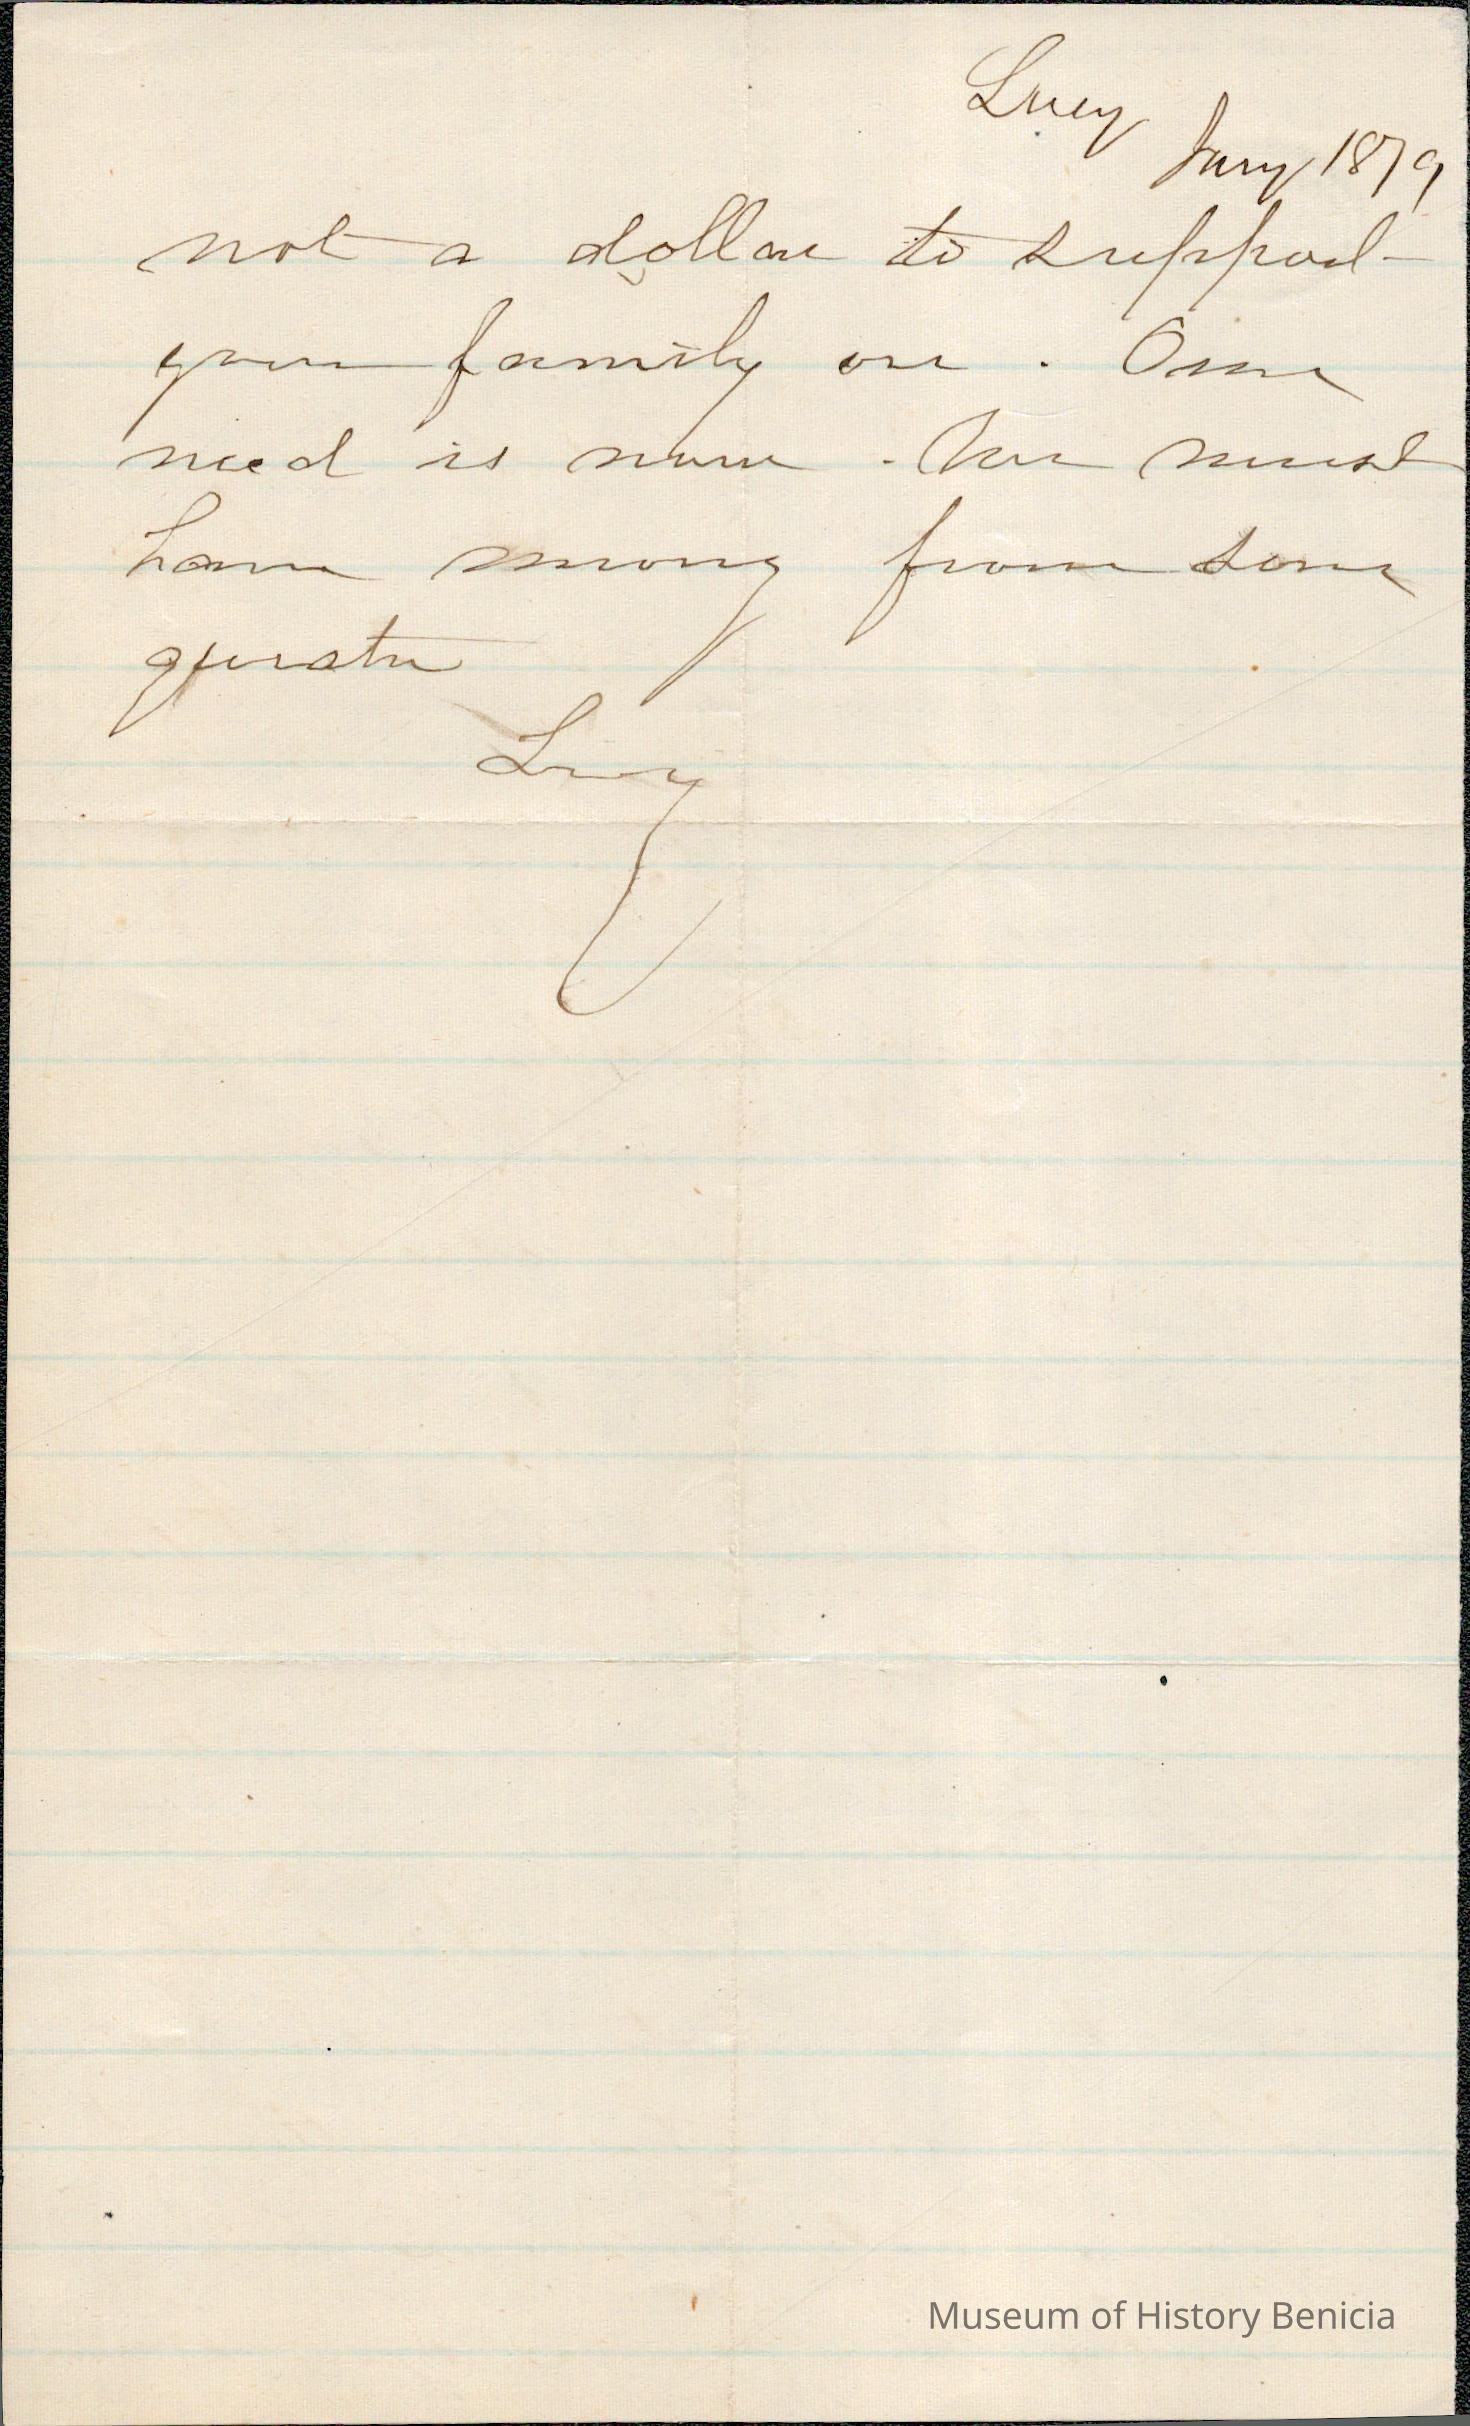 Lucy
Jany 1879
not a dollar to support
your family on. Our
need is now. We must
have money from some
quarter
Lucy
Museum of History Benicia